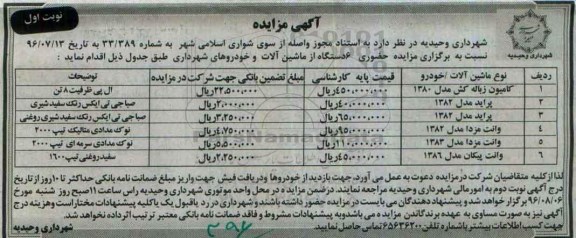 نوبت اول
آگهی مزایده
شهرداری وحیدیه
شهرداری وحیدیه در نظر دارد به استناد مجوز واصله از سوی شورای اسلامی شهر به شماره ۳۳/۳۸۹ به تاریخ ۹۶/۰۷/۱۳
نسبت به برگزاری مزایده حضوری ۶دستگاه از ماشین آلات و خودروهای شهرداری طبق جدول ذیل اقدام نماید :
ردیف نوع ماشین آلات /خودرو قیمت پایه کارشناسی مبلغ تضمین بانکی جهت شرکت در مزایده توضیحات
۱ کامیون زباله کش مدل ۱۳۸۰ ۴۵۰/۰۰۰/۰۰۰ریال ۲۲/۵۰۰/۰۰۰ریال ال پی ظرفیت ۸ تن
۲ پراید مدل ۱۳۸۲ ۴۰/۰۰۰/۰۰۰ریال ۲/۰۰۰/۰۰۰ریال صباجی تی ایکس رنگ سفیدشیری
۳ پراید مدل ۱۳۸۲ ۶۵/۰۰۰/۰۰۰ریال ۳/۲۵۰/۰۰۰ریال صباجی تی ایکس رنگ سفیدشیری روغنی
۴ وانت مزدا مدل ۱۳۸۲ ۹۵/۰۰۰/۰۰۰ریال ۴/۷۵۰/۰۰۰ریال نوک مدادی متالیک تیپ ۲۰۰۰
۵ وانت مزدا مدل ۱۳۸۳ ۱۱۰/۰۰۰/۰۰۰ریال ۵/۵۰۰/۰۰۰ریال نوک مدادی سرمه ای تیپ ۲۰۰۰
۶ وانت پیکان مدل ۱۳۸۶ ۴۵/۰۰۰/۰۰۰ریال ۲/۲۵۰/۰۰۰ریال سفیدروغنی تیپ۱۶۰۰
لذا از کلیه متقاضیان شرکت در مزایده دعوت به عمل می آورد، جهت بازدید از خودروها و دریافت فیش جهت واریز مبلغ ضمانت نامه بانکی حداکثر تا ۱۰روز از تاریخ
درج آگهی نوبت دوم به امور مالی شهرداری وحیدیه مراجعه نمایند. درضمن مزایده در محل واحد موتوری شهرداری وحیدیه راس ساعت ۱۱صبح روز شنبه مورخ
۹۶/۰۸/۰۶ برگزار خواهد شد و پیشنهاد دهندگان می بایست در مزایده حضور داشته باشند و شهرداری در رد یا قبول یک یا کلیه پیشنهادات مختار است و هزینه درج
آگهی نیز به صورت مساوی به عهده برندگان مزایده می باشد و به پیشنهادات مشروط و فاقد ضمانت نامه بانکی معتبر ترتیب اثر داده نخواهد شد.
جهت کسب اطلاعات بیشتر با شماره تلفن ۶۵۶۳۶۲۰۰ تماس حاصل نمایید.
شهرداری وحیدیه